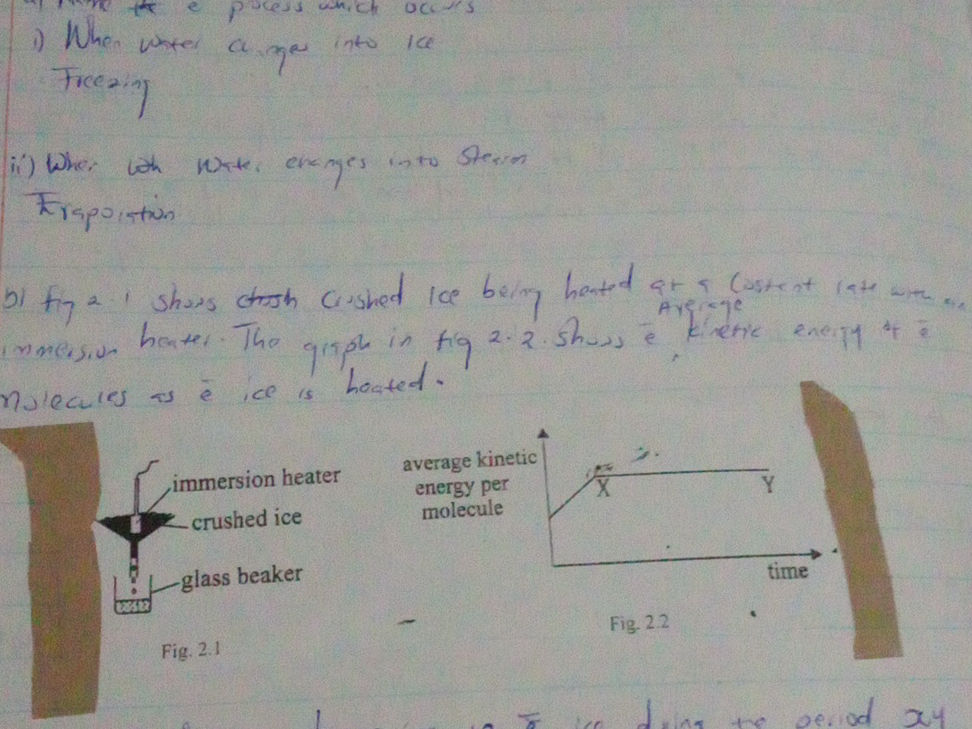 e process which occurs
i) When water changes into ice
Freezing
ii) When water changes into steam
Evaporation
b) fig 2.1 shows crushed ice being heated at a constant rate with an
Average
immersion heater. The graph in fig 2.2. shows ē kinetic energy of ē
molecules as ē ice is heated.
immersion heater
crushed ice
glass beaker
Fig. 2.1
average kinetic
energy per
molecule
X
Y
time
Fig. 2.2
ē ice during the period xy